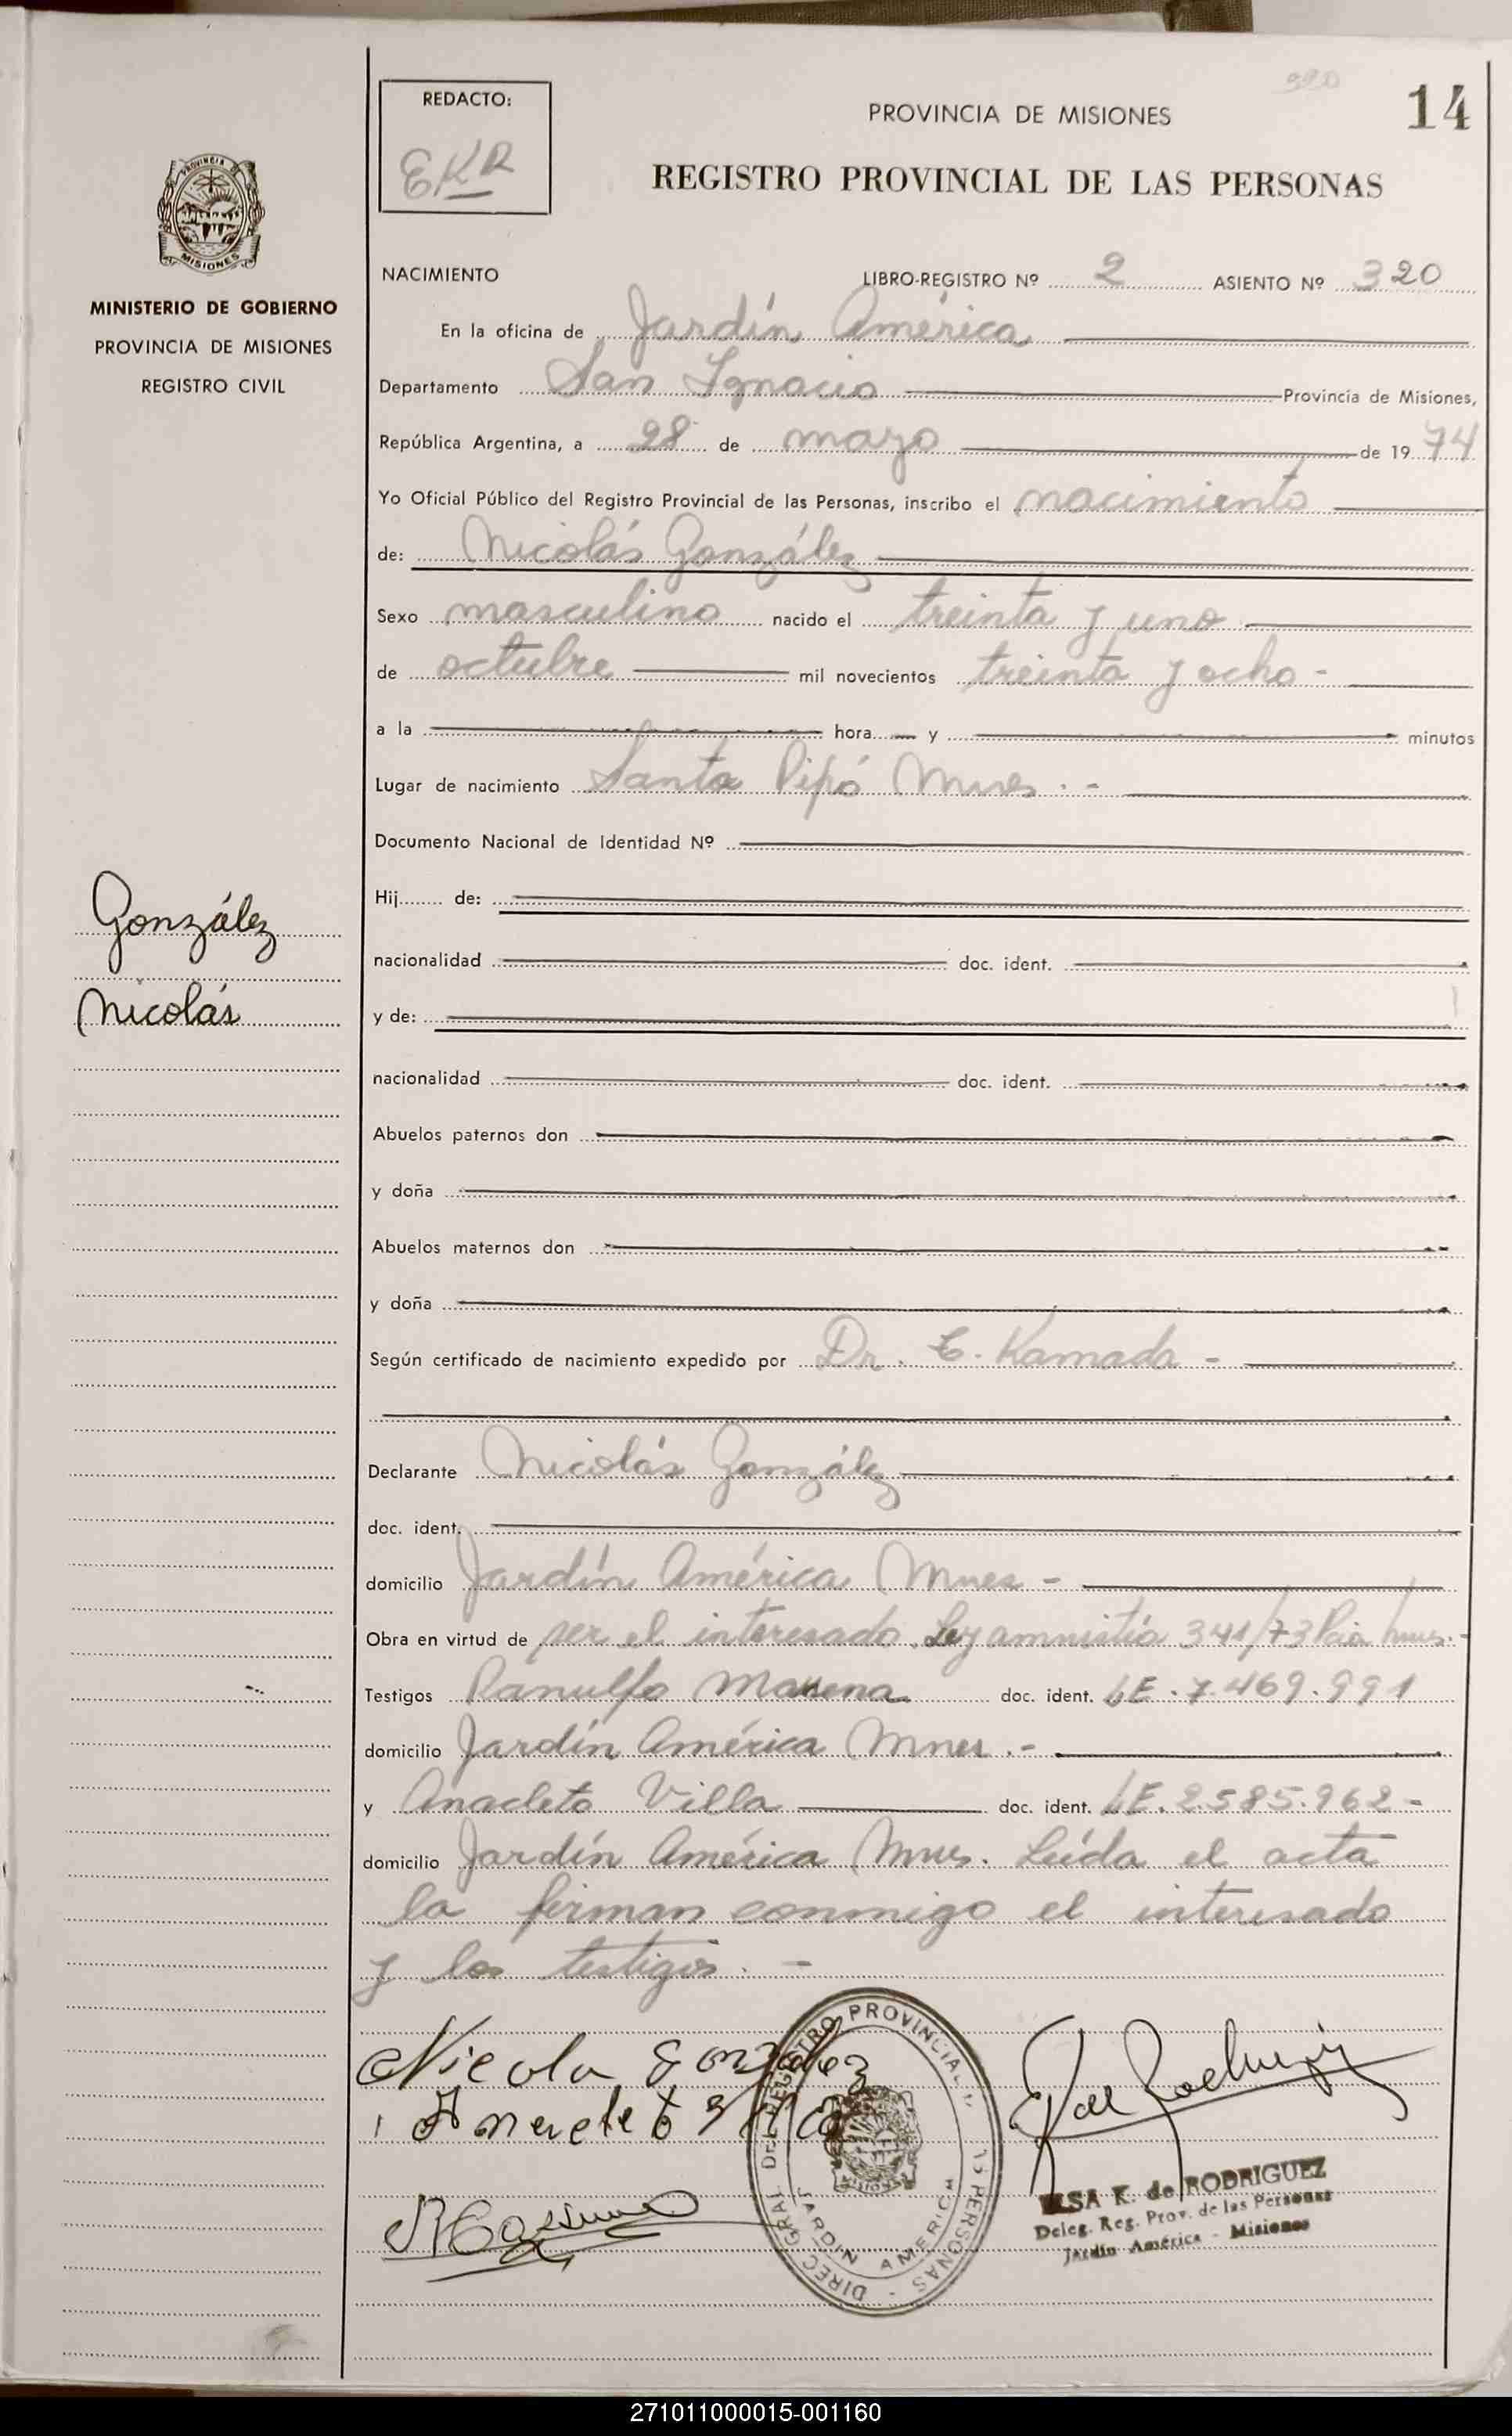 REDACTO:
EKR
PROVINCIA DE MISIONES
14
REGISTRO PROVINCIAL DE LAS PERSONAS
PROVINCIA
MISIONES
MINISTERIO DE GOBIERNO
PROVINCIA DE MISIONES
REGISTRO CIVIL
NACIMIENTO LIBRO-REGISTRO Nº 2 ASIENTO Nº 320
En la oficina de Jardín América
Departamento San Ignacio Provincia de Misiones,
República Argentina, a 28 de mayo de 1974
Yo Oficial Público del Registro Provincial de las Personas, inscribo el nacimiento
de: Nicolás González
Sexo masculino nacido el treinta y uno
de octubre mil novecientos treinta y ocho -
a la hora y minutos
Lugar de nacimiento Santo Pipó Mnes . -
Documento Nacional de Identidad Nº
González
Nicolás
Hij de:
nacionalidad doc. ident.
y de:
nacionalidad doc. ident.
Abuelos paternos don
y doña
Abuelos maternos don
y doña
Según certificado de nacimiento expedido por Dr. C. Kamada -
Declarante Nicolás González
doc. ident.
domicilio Jardín América Mnes -
Obra en virtud de ser el interesado. Ley amnistía 341/73 Pcia Mnes.-
Testigos Ranulfo doc. ident. LE. 7.469.991
domicilio Jardín América Mnes .-
y Anacleto Villa doc. ident. LE. 2.585.962 -
domicilio Jardín América Mnes. Leída el acta
la firman conmigo el interesado
y los testigos. -
Nicola Gonzalez
DIREC. GRAL. DEL REGISTRO PROVINCIAL DE LAS PERSONAS -
JARDIN AMERICA
ELSA K. de RODRIGUEZ
Deleg. Reg. Prov. de las Personas
Jardín América - Misiones
271011000015-001160